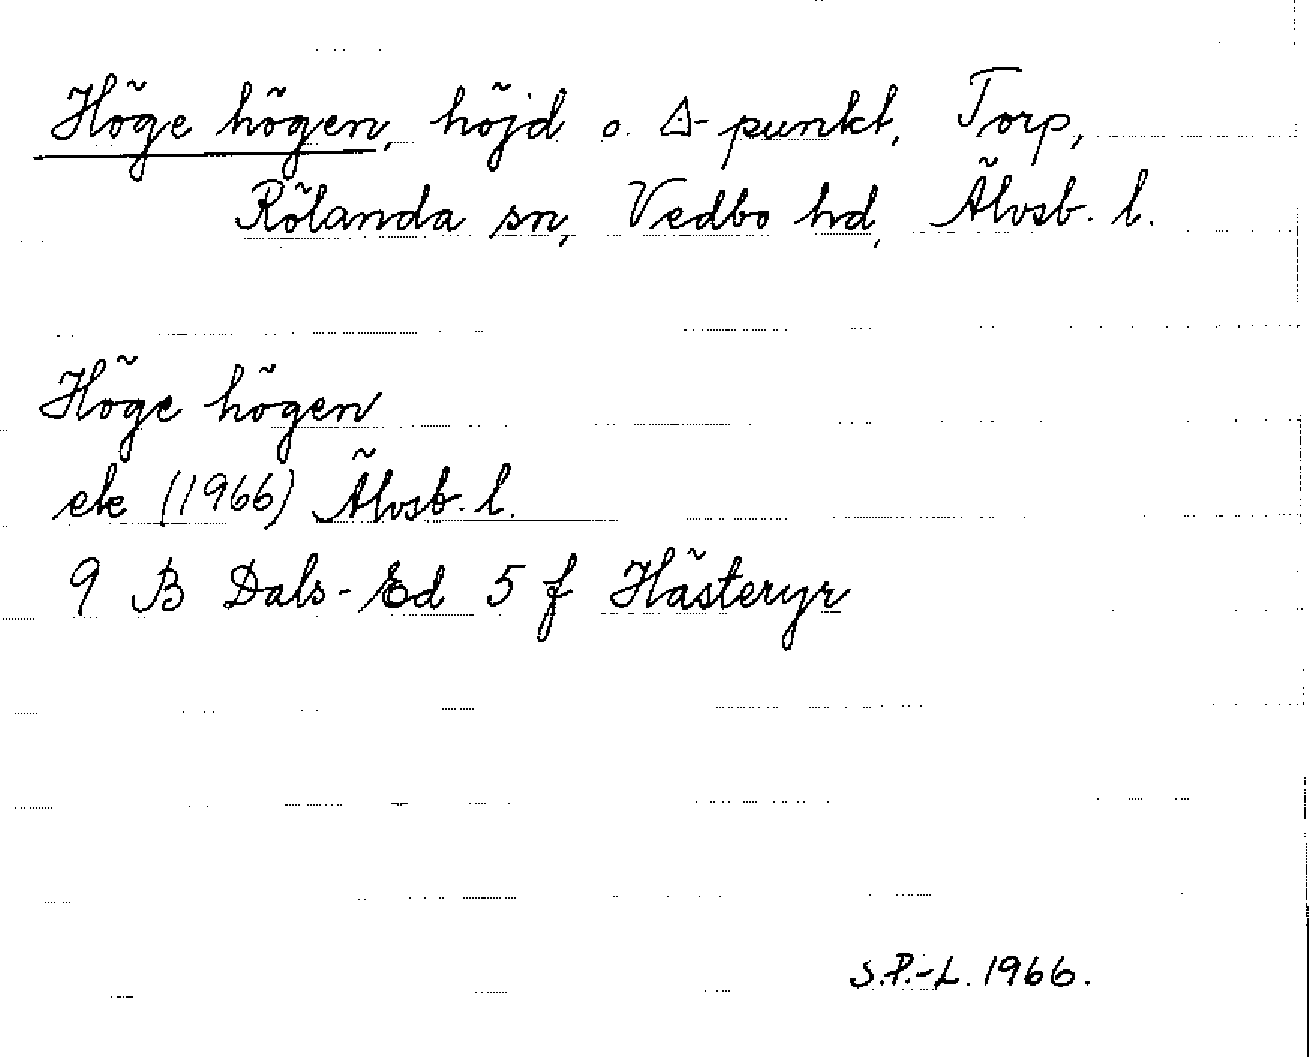 Höge högen, höjd o. △-punkt, Torp,
Rölanda sn, Vedbo hd, Älvsb. l.
Höge högen
ek (1966) Älvsb. l.
9 B Dals-Ed 5 f Hästeryr
S.P.-L. 1966.